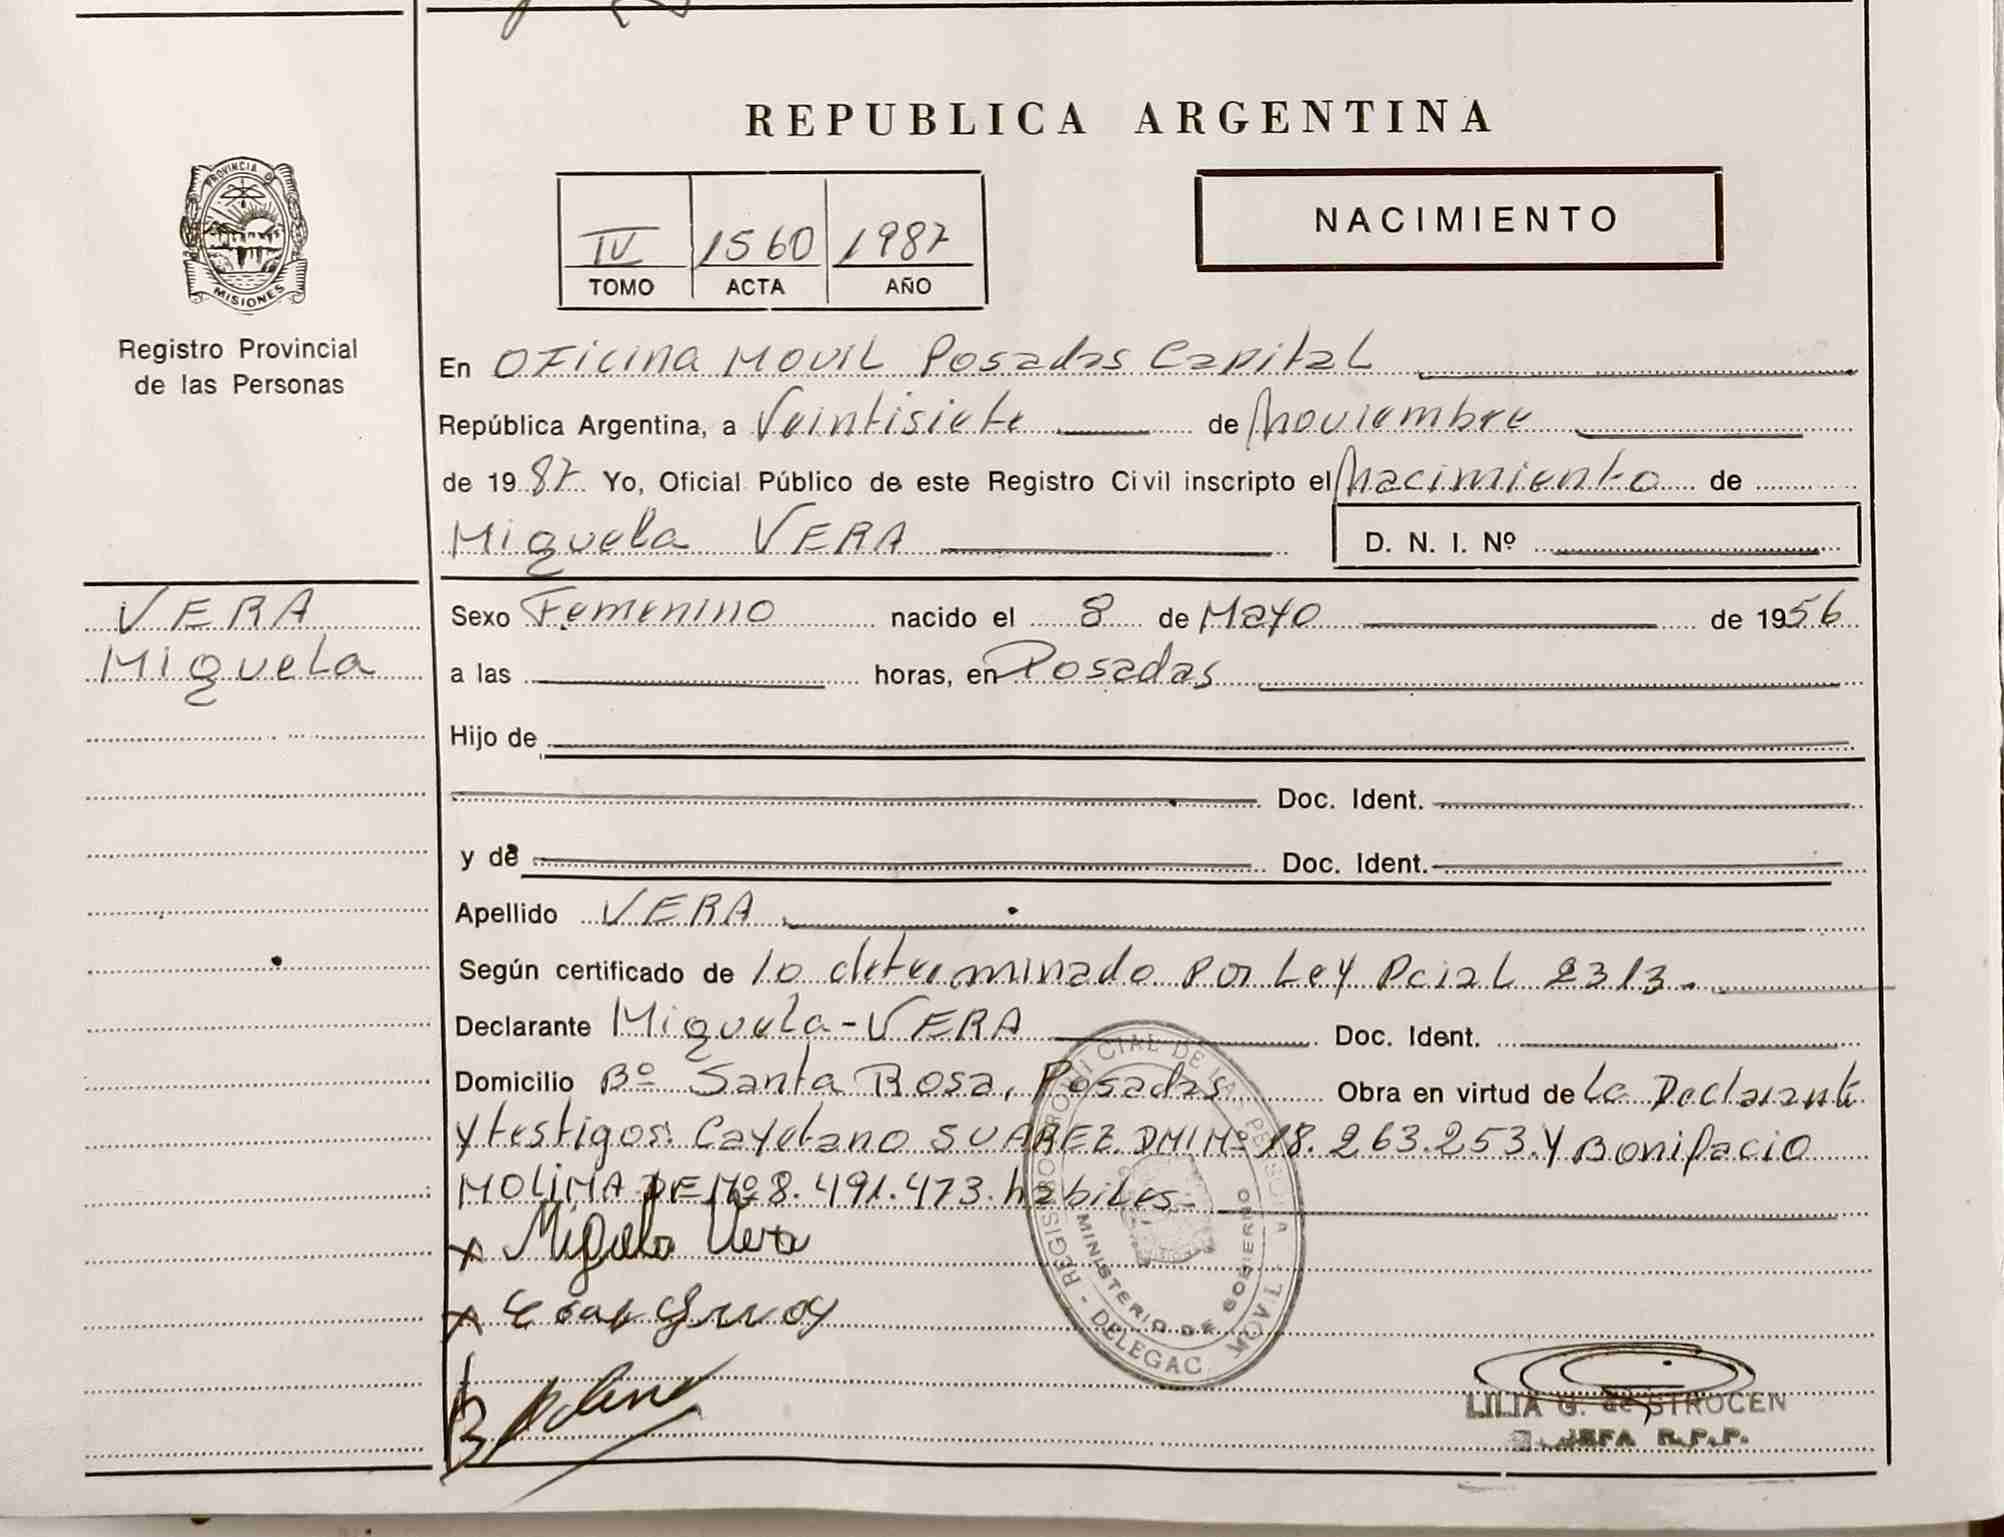 REPUBLICA ARGENTINA
PROVINCIA D
MISIONES
Registro Provincial
de las Personas
NACIMIENTO
IV 1560 1987
TOMO ACTA AÑO
En OFicina MOVIL Posadas Capital
República Argentina, a Veintisiete de Noviembre
de 1987 Yo, Oficial Público de este Registro Civil inscripto el Nacimiento de
Miguela VERA D. N. I. Nº
VERA
Miguela
Sexo Femenino nacido el 8 de Mayo de 1956
a las horas, en Posadas
Hijo de
Doc. Ident.
y de Doc. Ident.
Apellido VERA
Según certificado de lo determinado por Ley Pcial 2313.
Declarante Miguela-VERA Doc. Ident.
Domicilio Bº Santa Rosa, Posadas Obra en virtud de la Declarante
y testigos: Cayetano SUAREZ DNI Nº 18.263.253.Y Bonifacio
MOLINA DE Nº 8.491.473. habiles
x Miguela Vera
x
REGISTRO PROVINCIAL DE LAS PERSONAS - DELEGAC. MOVIL
MINISTERIO DE GOBIERNO
LILIA G. de STROCEN
JEFA R.P.P.